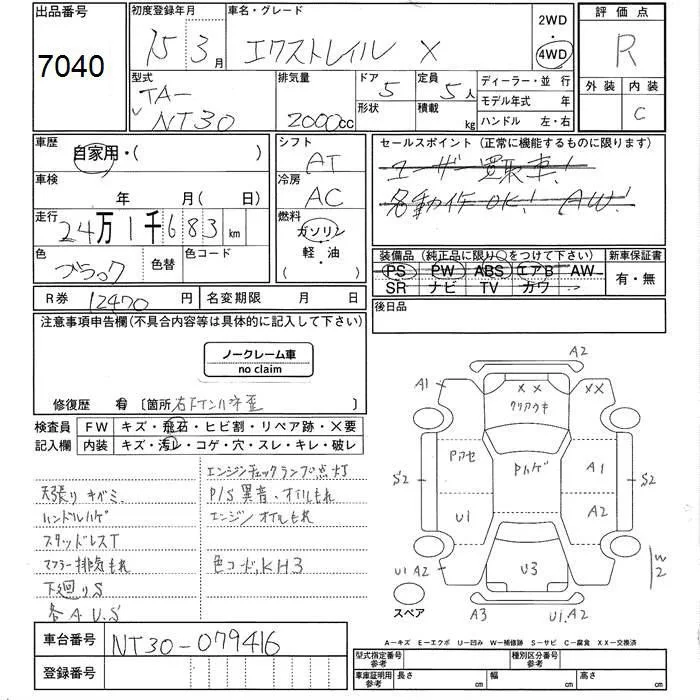 出品番号
7040
初度登録年月
15 3月
車名・グレード
エクストレイル X
2WD
・
4WD
評価点
R
外装 内装
C
型式
TA-
NT30
排気量
2000cc
ドア
5
形状
定員
5人
積載
kg
ディーラー・並行
モデル年式 年
ハンドル 左・右
車歴
自家用・( )
車検
年 月( 日)
走行
24万1千683km
色
ブラック
色替
色コード
シフト
AT
冷房
AC
燃料
ガソリン
軽・油
( ・ )
セールスポイント (正常に機能するものに限ります)
ユーザー買取車!
各動作OK! AW!
装備品 (純正品に限り○をつけて下さい)
PS PW ABS エアB AW
SR ナビ TV カワ
新車保証書
有・無
R券 12470 円
名変期限 月 日
後日品
注意事項申告欄(不具合内容等は具体的に記入して下さい)
ノークレーム車
no claim
修復歴 有 〔箇所 右 〕
検査員
記入欄
FW キズ・飛石・ヒビ割・リペア跡・X要
内装 キズ・汚レ・コゲ・穴・スレ・キレ・破レ
天張りキバミ
ハンドルハゲ
スタッドレスT
マフラー排気もれ
下廻りS
各A.U.S
エンジンチェックランプ点灯
P/S異音、オイルもれ
エンジンオイルもれ
色コード、KH3
A2
A1
XX
XX
クリアウキ
Pアセ
Pハゲ
A1
S2
S2
U1
A2
U1 A2
U3
A2
W2
スペア
A3
U1.A2
A-キズ E-エクボ U-凹み W-補修跡 S-サビ C-腐食 XX-交換済
車台番号
NT30-079416
登録番号
型式指定番号
参考
種別区分番号
参考
車庫証明用
参考
長さ cm
幅 cm
高さ cm